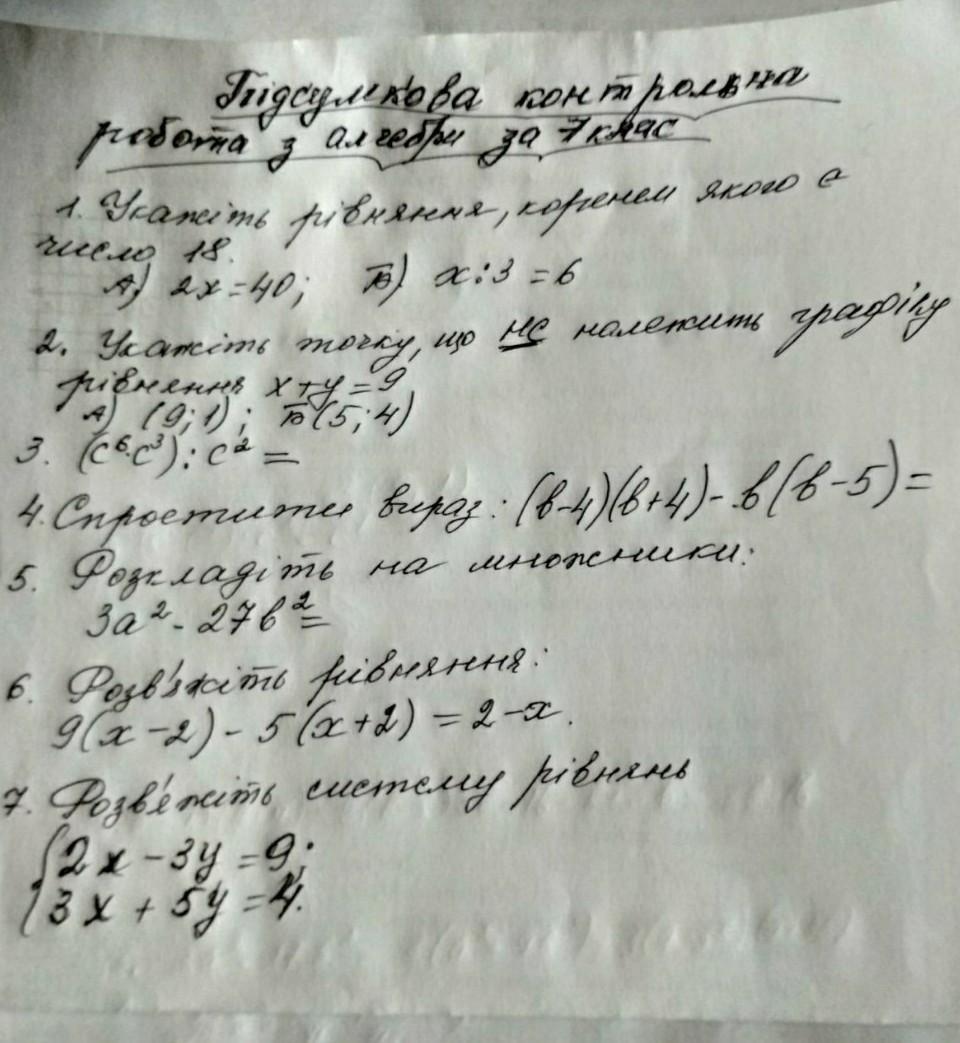 Підсумкова контрольна
робота з алгебри за 7 клас
1. Укажіть рівняння, коренем якого є
число 18.
А) 2x=40; Б) x:3=6
2. Укажіть точку, що не належить графіку
рівняння x+y=9
А) (9;1); Б (5;4)
3. (c⁶·c³):c²=
4. Спростити вираз: (b-4)(b+4)-b(b-5)=
5. Розкладіть на множники:
3a²-27b²=
6. Розв'яжіть рівняння:
9(x-2)-5(x+2)=2-x.
7. Розв'яжіть систему рівнянь
{2x-3y=9;
{3x+5y=4.